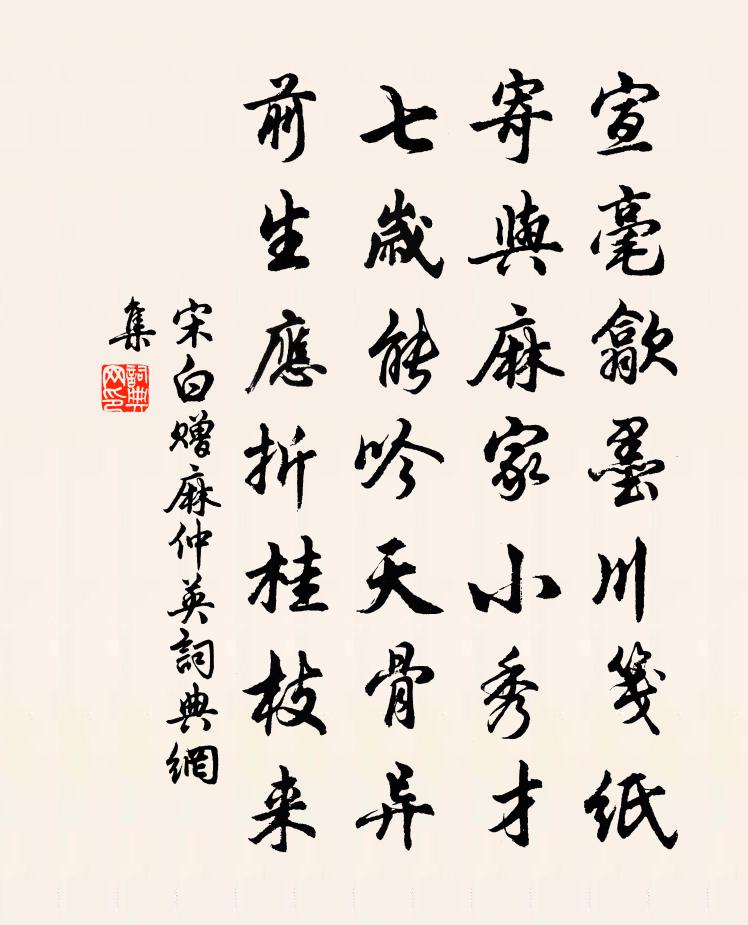 宣毫歙墨川箋紙
寄與麻家小秀才
七歲能吟天骨异
前生應折桂枝来
宋白贈麻仲英詞典網
集
詞典網印